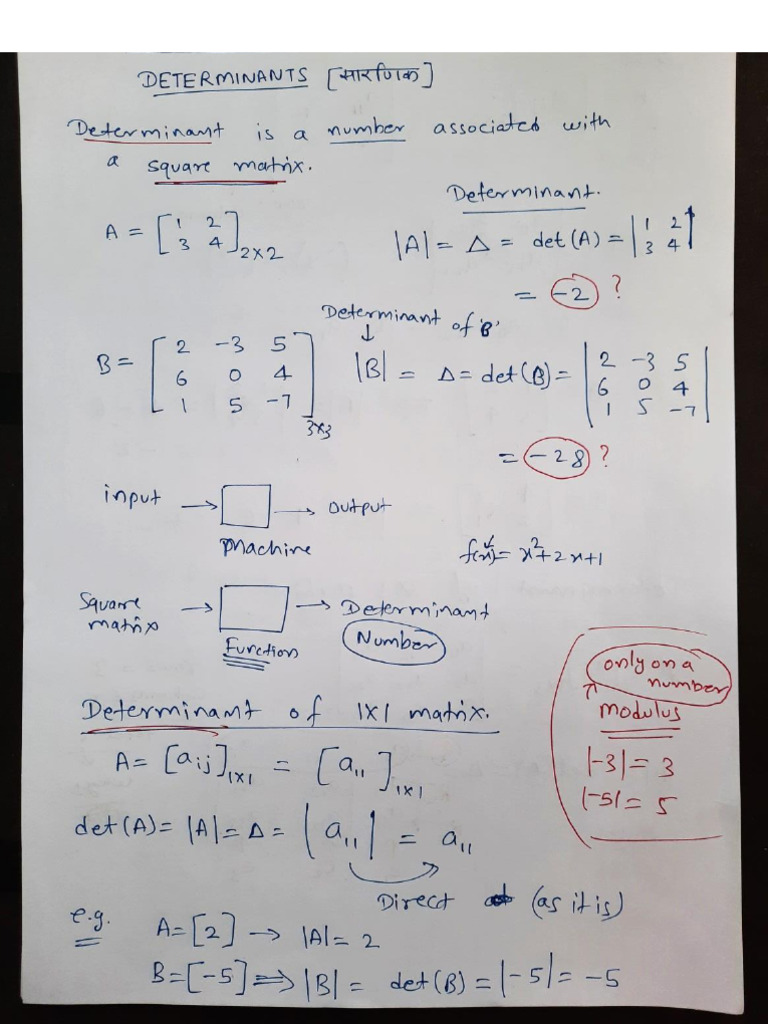 DETERMINANTS [सारणिक]
Determinant is a number associated with
a square matrix.
Determinant.
A = [1 2
3 4]2×2
|A| = Δ = det(A) = |1 2
3 4|
= -2 ?
Determinant of 'B'
↓
B = [2 -3 5
6 0 4
1 5 -7]3×3
|B| = Δ = det(B) = |2 -3 5
6 0 4
1 5 -7|
= -28 ?
input → □ → output
Machine
f(x) = x²+2x+1
Square matrix → □ → Determinant
Function
Number
only on a
number
modulus
|-3| = 3
|-5| = 5
Determinant of 1×1 matrix.
A = [aij]1×1 = [a11]1×1
det(A) = |A| = Δ = |a11| = a11
Direct (as it is)
e.g.
A = [2] → |A| = 2
B = [-5] ⇒ |B| = det(B) = |-5| = -5